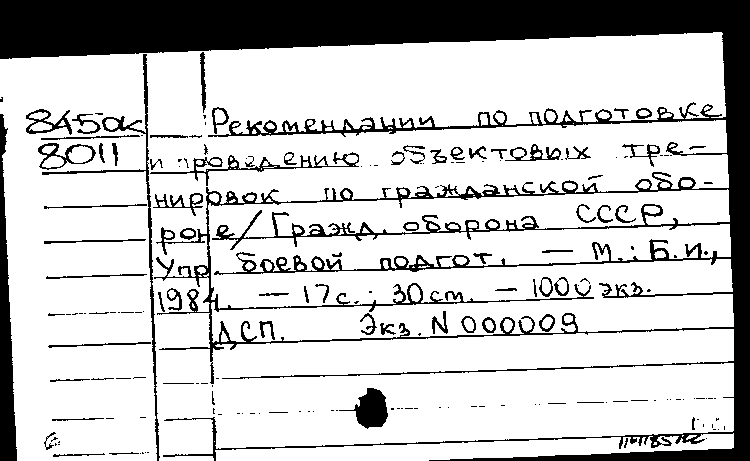 845ок
8011
Рекомендации по подготовке
и проведению объектовых тре-
нировок по гражданской обо-
роне/Гражд. оборона СССР,
Упр. боевой подгот. — М.: Б.и.,
1984. — 17с.; 30см. — 1000 экз.
ДСП. Экз. N 000009